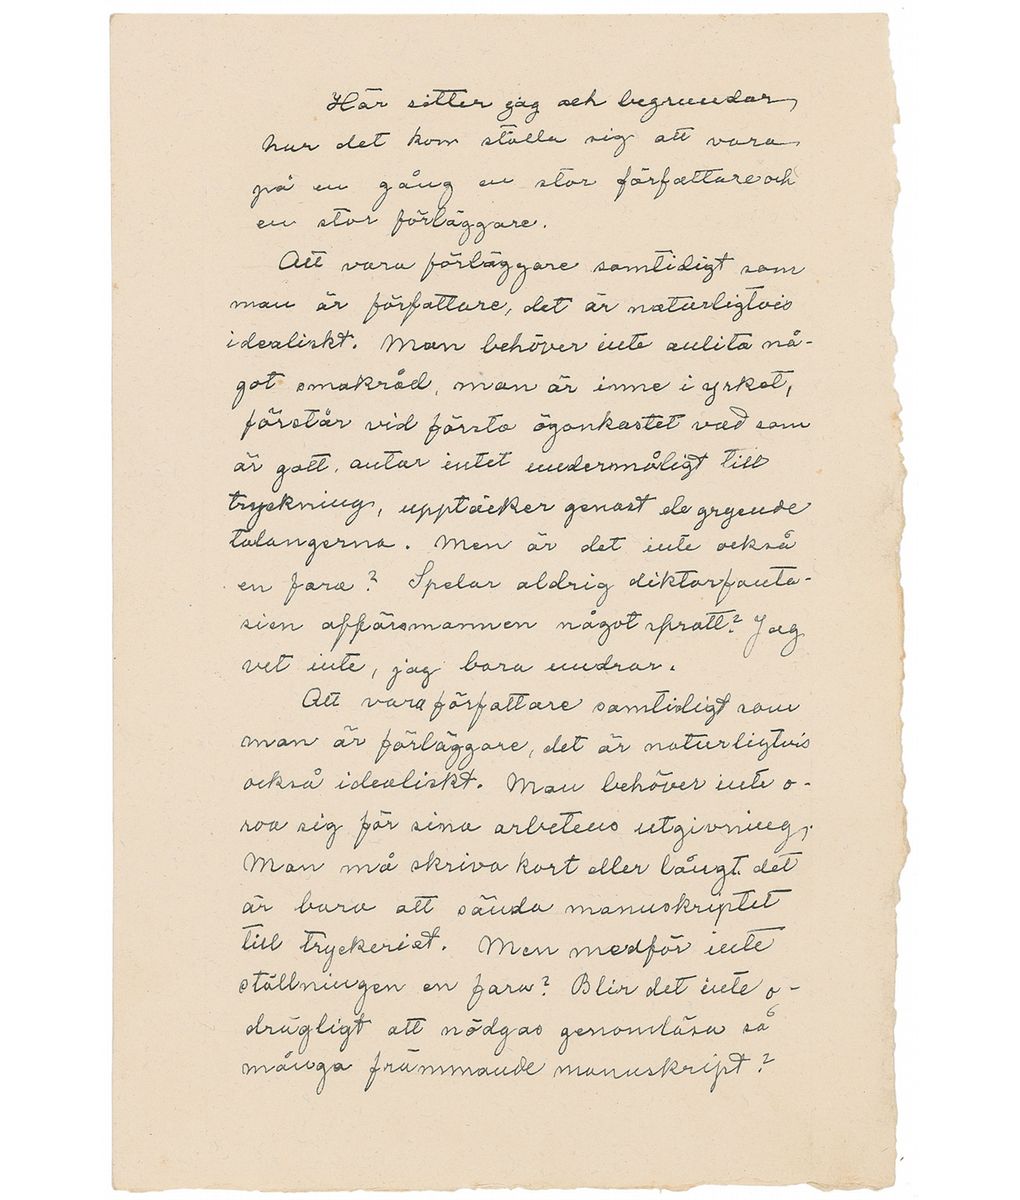 Här sitter jag och begrundar,
hur det kan ställa sig att vara
på en gång en stor författare och
en stor förläggare.
Att vara förläggare samtidigt som
man är författare, det är naturligtvis
idealiskt. Man behöver inte anlita nå-
got smakråd, man är inne i yrket,
förstår vid första ögonkastet vad som
är gott, antar intet undermåligt till
tryckning, upptäcker genast de gryende
talangerna. Men är det inte också
en fara? Spelar aldrig diktarfanta-
sien affärsmannen något spratt? Jag
vet inte, jag bara undrar.
Att vara författare samtidigt som
man är förläggare, det är naturligtvis
också idealiskt. Man behöver inte o-
roa sig för sina arbetens utgivning,
Man må skriva kort eller långt, det
är bara att sända manuskriptet
till tryckeriet. Men medför inte
ställningen en fara? Blir det inte o-
drägligt att nödgas genomläsa så
många främmande manuskript?